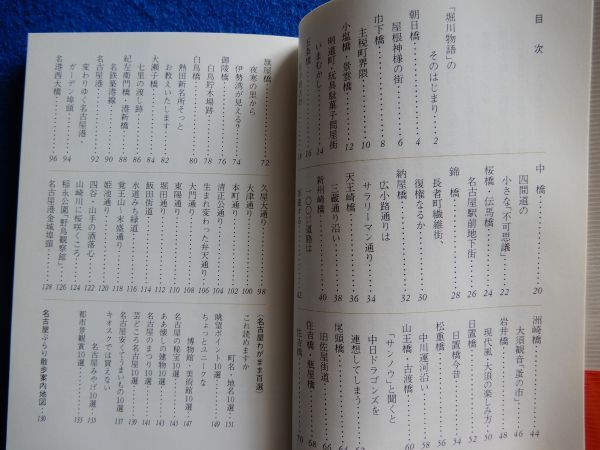 目次
「堀川物語」の
そのはじまり 2
朝日橋 4
屋根神様の街 6
巾下橋 8
主税町界隈 10
小塩橋・景雲橋 12
いまむかし
明道町・玩具駄菓子問屋街 14
中橋 20
四間道の
小さな「不可思議」 22
桜橋・伝馬橋 24
名古屋駅前地下街 26
錦橋 28
長者町繊維街、
復権なるか 30
納屋橋 32
広小路通りは
サラリーマン通り 34
天王崎橋 36
三蔵通り沿い 38
新州崎橋 40
一〇〇ｍ道路は
42
洲崎橋 44
大須観音「蚤の市」 46
岩井橋 48
現代風・大須の楽しみ方 50
日置橋 52
日置橋今昔 54
松重橋 56
中川運河沿い 58
山王橋・古渡橋 60
「サンノウ」と聞くと
中日ドラゴンズを
連想してしまう 62
尾頭橋 64
旧佐屋街道 66
住吉橋・瓶屋橋 68
住吉橋 70
旗屋橋 72
夜寒の里から
伊勢湾が見える? 74
御陵橋 76
白鳥貯木場跡 78
白鳥橋 80
熱田新名所そっと
お教えいたします 82
大瀬子橋 84
七里の渡し跡 86
紀左衛門橋・港新橋 88
名鉄築港線 90
名古屋港 92
変わりゆく名古屋港・
ガーデン埠頭 94
名港西大橋 96
久屋大通り 98
大津通り 100
本町通り 102
清正公通り 104
生まれ変わった弁天通り 106
大門通り 108
東陽通り 110
堀田通り 112
飯田街道 114
水道みち緑道 116
覚王山・末盛通り 118
姫池通り 120
四谷・山手の洒落心 122
山崎川に桜咲くころ 124
稲永公園「野鳥観察館」 126
名古屋港金城埠頭 128
〈名古屋わがまま百選〉
これ読めますか
町名・地名10選 131
眺望ポイント10選 149
ちょっとユニークな
博物館・美術館10選 147
名古屋の秘宝10選 145
ああ懐しの建物10選 143
名古屋のまつり10選 141
芸どころ名古屋10選 139
名古屋安くてうまいもの10選 137
キオスクでは買えない
名古屋みやげ10選 135
都市景観賞10選 133
名古屋ぶらり散歩案内地図 130